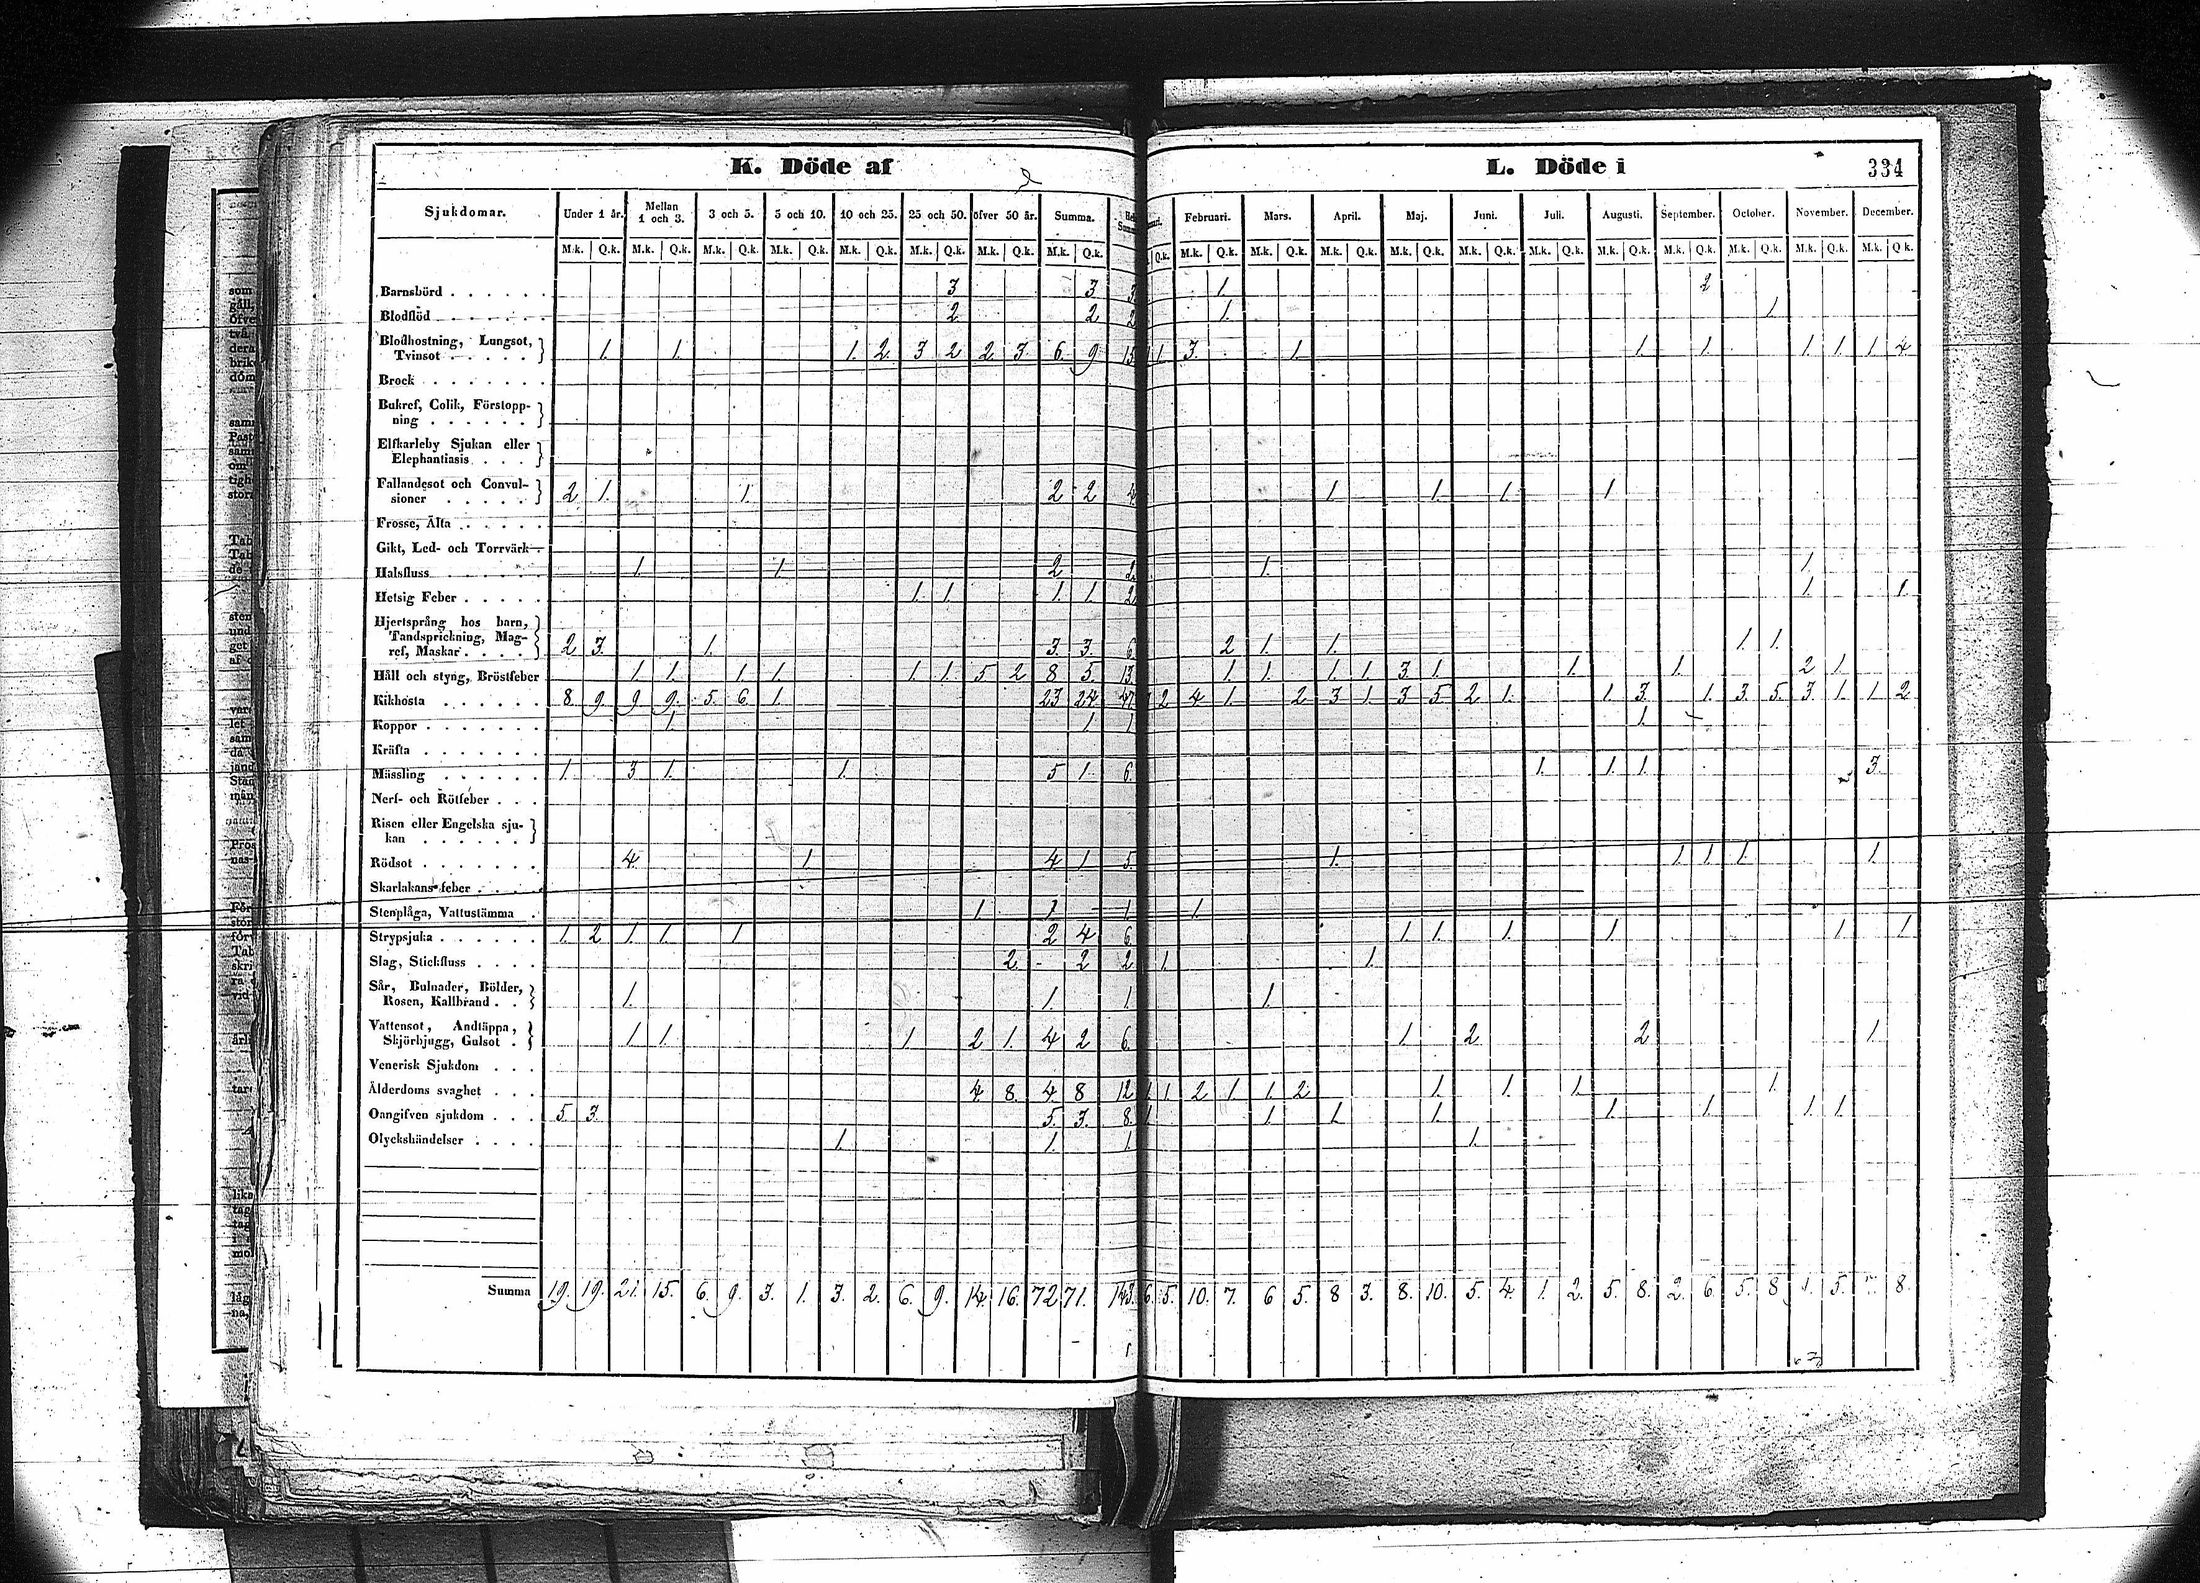 K. Döde af
L. Döde i
334
Sjukdomar. Under 1 år. Mellan 1 och 3. 3 och 5. 5 och 10. 10 och 25. 25 och 50. öfver 50 år. Summa. Februari. Mars. April. Maj. Juni. Juli. Augusti. September. October. November. December.
M.k. Q.k. M.k. Q.k. M.k. Q.k. M.k. Q.k. M.k. Q.k. M.k. Q.k. M.k. Q.k. M.k. Q.k. Q.k. M.k. Q.k. M.k. Q.k. M.k. Q.k. M.k. Q.k. M.k. Q.k. M.k. Q.k. M.k. Q.k. M.k. Q.k. M.k. Q.k. M.k. Q.k. M.k. Q.k.
Barnsbörd . . . . . . 3 3 3 1. 2
Blodflöd . . . . . . 2 2 2 1. 1.
Blodhostning, Lungsot,
Tvinsot . . . . . } 1. 1. 1. 2. 3 2 2. 3. 6. 9 15 1 1. 3. 1. 1. 1. 1. 1. 1. 4
Brock . . . . . . .
Bukref, Colik, Förstopp-
ning . . . . . . }
Elfkarleby Sjukan eller
Elephantiasis . . . }
Fallandesot och Convul-
sioner . . . . . } 2 1. 1. 2 2 4 1. 1. 1. 1.
Frosse, Älta . . . . .
Gikt, Led- och Torrvärk
Halsfluss . . . . . . 1. 1. 2 2 1. 1.
Hetsig Feber . . . . . 1. 1. 1. 1. 2 1. 1.
Hjertsprång hos barn,
Tandsprickning, Mag-
ref, Maskar . . . . } 2 3. 1. 3. 3. 6 2 1. 1. 1. 1.
Håll och styng, Bröstfeber 1. 1. 1. 1. 1. 1. 5 2 8 5. 13. 1. 1. 1. 1. 3. 1. 1. 1. 2 1.
Kikhosta . . . . . . 8. 9. 9 9. 5. 6. 1. 23 24 47 2 4 1. 2 3 1. 3 5 2 1. 1. 3. 1. 3. 5. 3. 1. 1. 2
Koppor . . . . . . . 1. 1 1 1.
Kräfta . . . . . . .
Mässling . . . . . . 1. 3 1. 1. 5 1. 6. 1. 1. 1. 3.
Nerf- och Rötfeber . . .
Risen eller Engelska sju-
kan . . . . . . }
Rödsot . . . . . . . 4. 1. 4 1 5. 1. 1. 1. 1. 1.
Skarlakans feber . . . .
Stenplåga, Vattustämma . 1. 1. 1 1.
Strypsjuka . . . . . . 1. 2 1. 1. 1. 2 4 6. 1. 1. 1. 1. 1. 1.
Slag, Stickfluss . . . . 2. 2 2 1. 1.
Sår, Bulnader, Bölder,
Rosen, Kallbrand . . } 1. 1. 1 1.
Vattensot, Andtäppa,
Skjörbjugg, Gulsot . } 1. 1. 1. 2 1. 4 2 6. 1. 2 2 1.
Venerisk Sjukdom . . .
Ålderdoms svaghet . . . 4 8. 4. 8 12 1 1 2 1. 1. 2. 1. 1. 1. 1.
Oangifven sjukdom . . . 5. 3. 5. 3. 8. 1. 1. 1. 1. 1. 1. 1. 1.
Olyckshändelser . . . . 1. 1. 1. 1.
Summa 19. 19. 21. 15. 6. 9. 3. 1. 3. 2. 6. 9. 14. 16. 72 71. 143. 6. 5. 10. 7. 6 5. 8 3. 8. 10. 5. 4. 1. 2. 5. 8. 2. 6. 5. 8 5. 8.